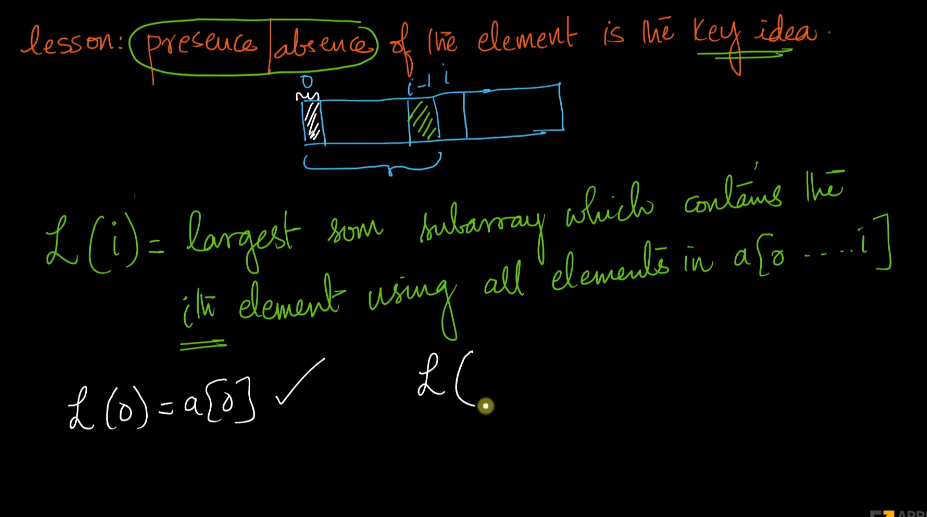 lesson: presence/absence of the element is the key idea.
0 i-1 i
L(i) = largest som subarray which contains the
ith element using all elements in a[0 ....i]
L(0) = a[0] ✓ L(